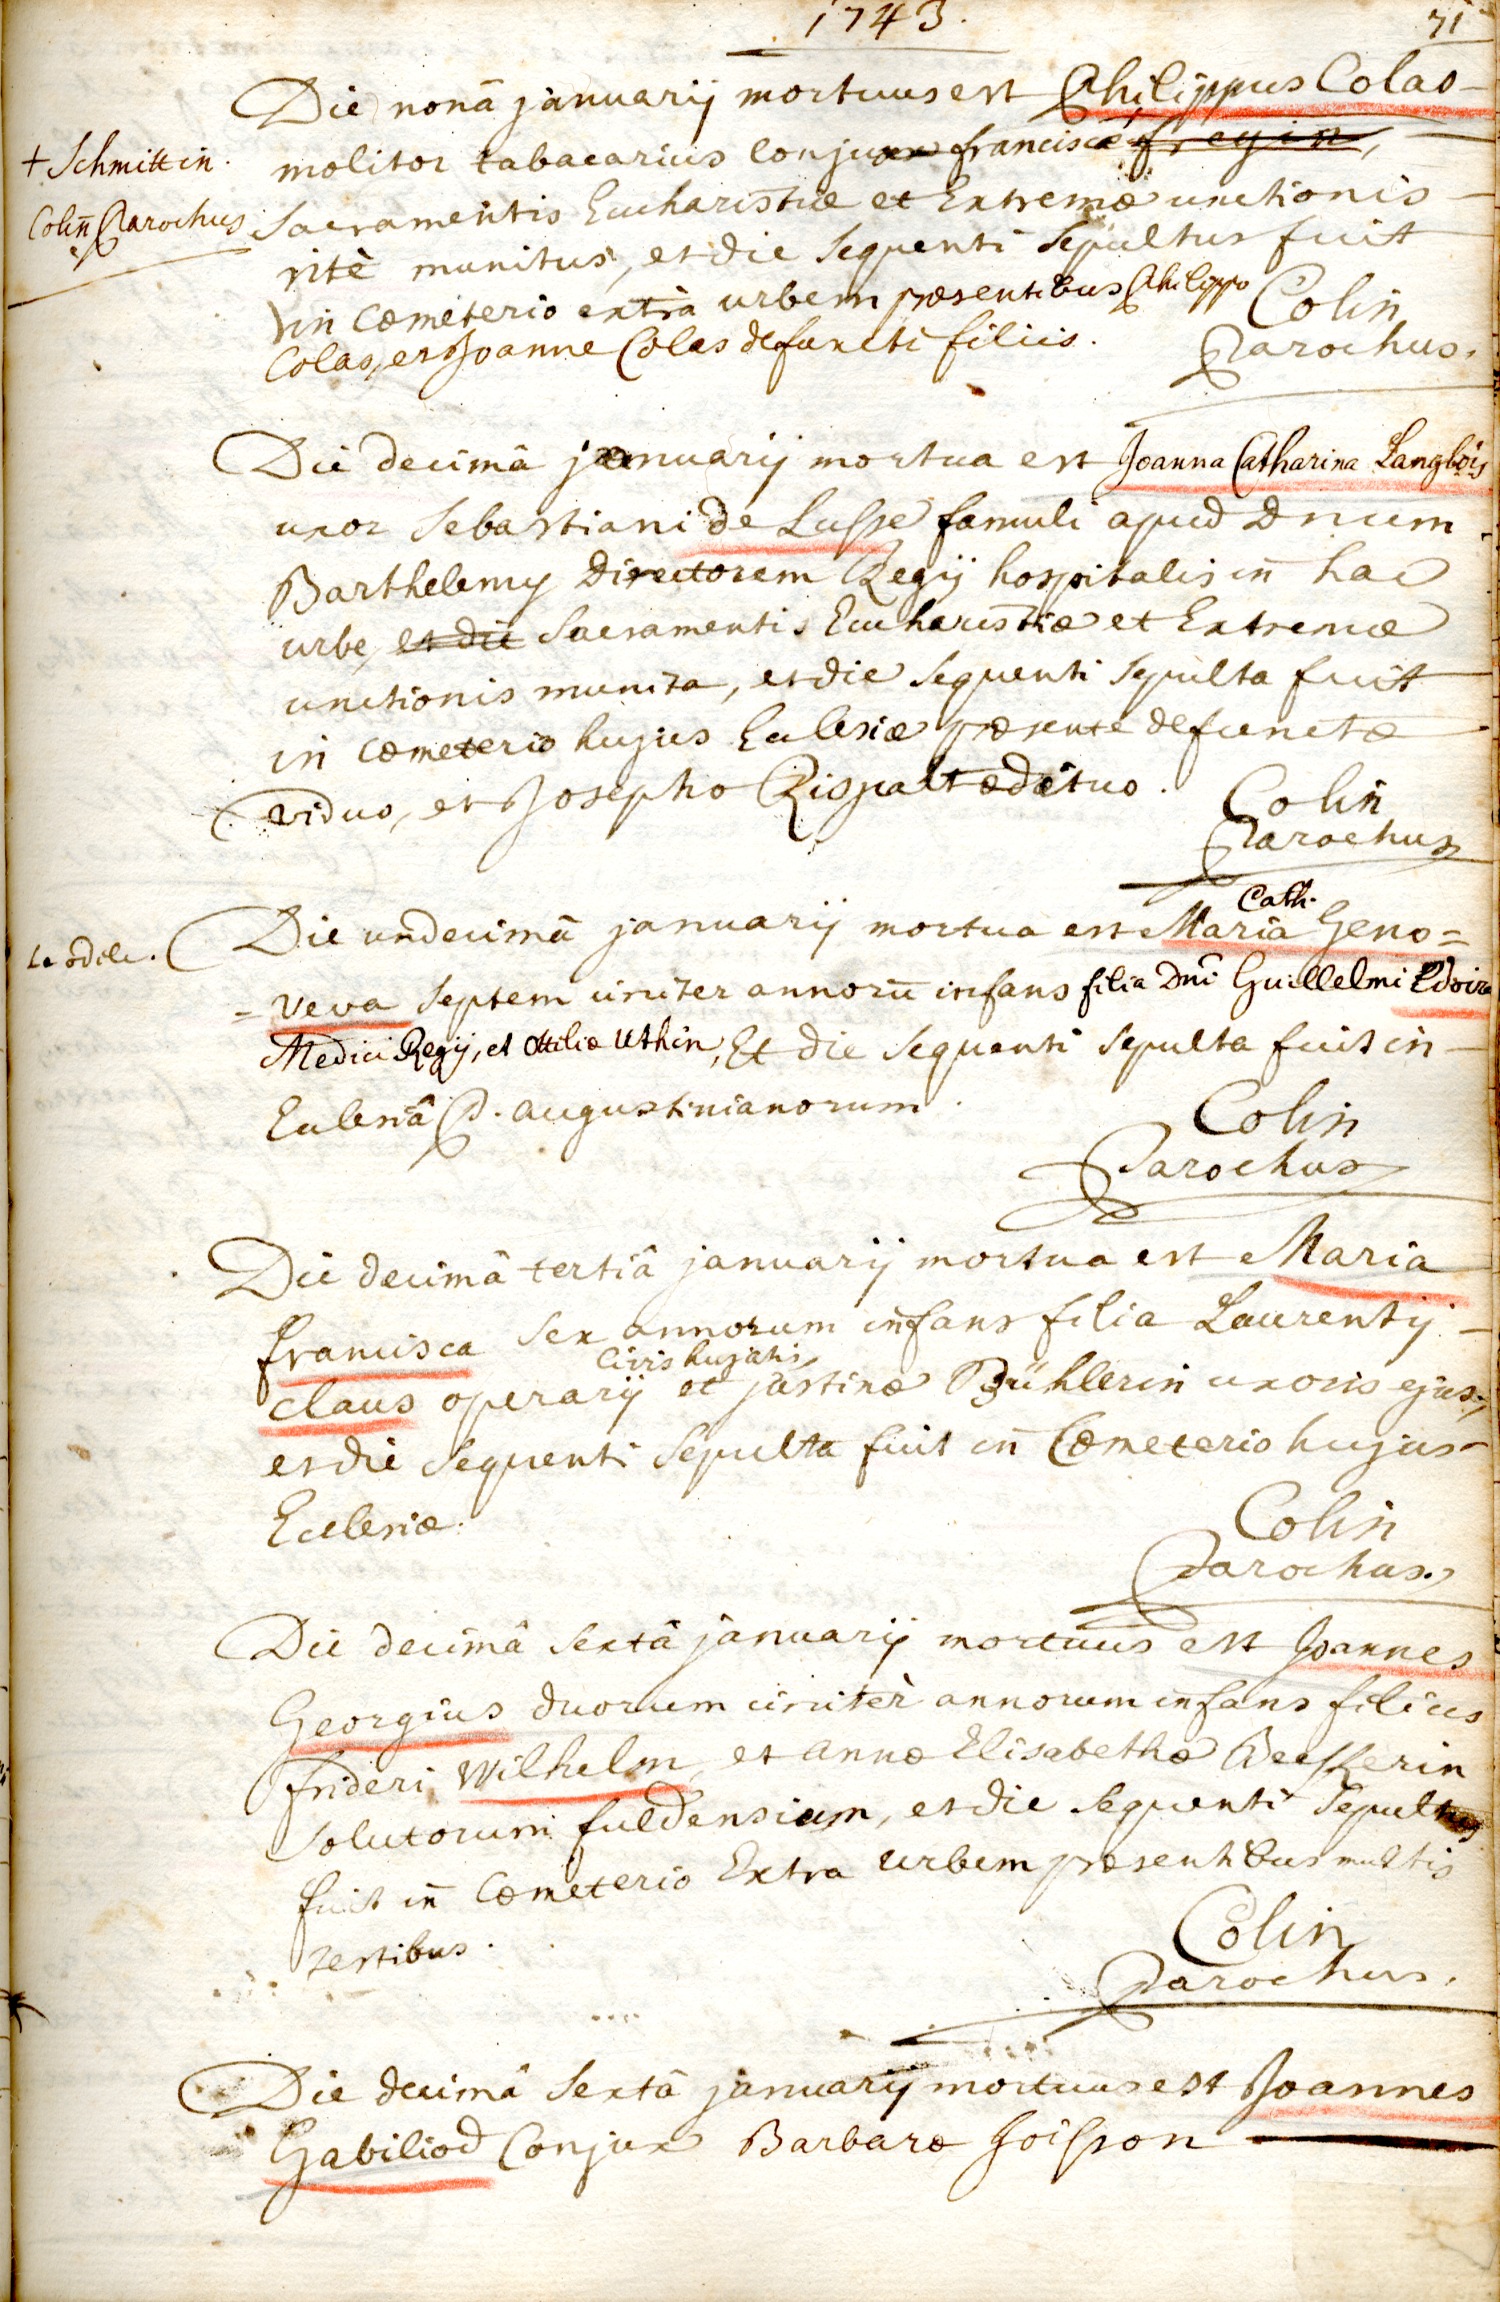 1743.
71
Die nonâ januarij mortuus est Philippus Colas
+ Schmittin.
molitor tabacarius conjux franciscæ fregin,
Colin Parochus
Sacramentis Eucharistiæ et Extremæ unctionis
ritè munitus, et die sequenti sepultus fuit
in cœmeterio extrà urbem præsentibus Philippo
Colas, et Joanne Colas defuncti filiis.
Colin
Parochus.
Die decimâ januarij mortua est Joanna Catharina Langlois
uxor Sebastiani de Lusse famuli apud Dnum
Barthelemy Directorem Regij hospitalis in hac
urbe, et die Sacramentis Eucharistiæ et Extremæ
unctionis munita, et die sequenti sepulta fuit
in cœmeterio hujus Eclesiæ præsente defunctæ
viduo, et Josepho Rispalt ædituo.
Colin
Parochus
Cath.
Die undecimâ januarij mortua est Maria Geno=
=veva septem circiter annorū infans filia Dni Guillelmi
Medici Regij, et Ottiliæ Uthin, Et die sequenti sepulta fuit in
Eclesiâ P. augustinianorum.
Colin
Parochus
Die decimâ tertiâ januarij mortua est Maria
francisca sex annorum infans filia Laurentij
civis hujatis
claus operarij et justinæ Bühlerin uxoris ejus,
et die sequenti sepulta fuit in Cœmeterio hujus
Eclesiæ.
Colin
Parochus.
Die decimâ sextâ januarij mortuus est Joannes
Georgius duorum circitèr annorum infans filius
frideri Wilhelm, et annæ Elisabethæ
solutorum fuldensium, et die sequenti sepultus
fuit in Cœmeterio Extra urbem præsentibus multis
testibus.
Colin
Parochus.
Die decimâ sextâ januarij mortuus est Joannes
Gabiliod Conjux Barbaræ foisson